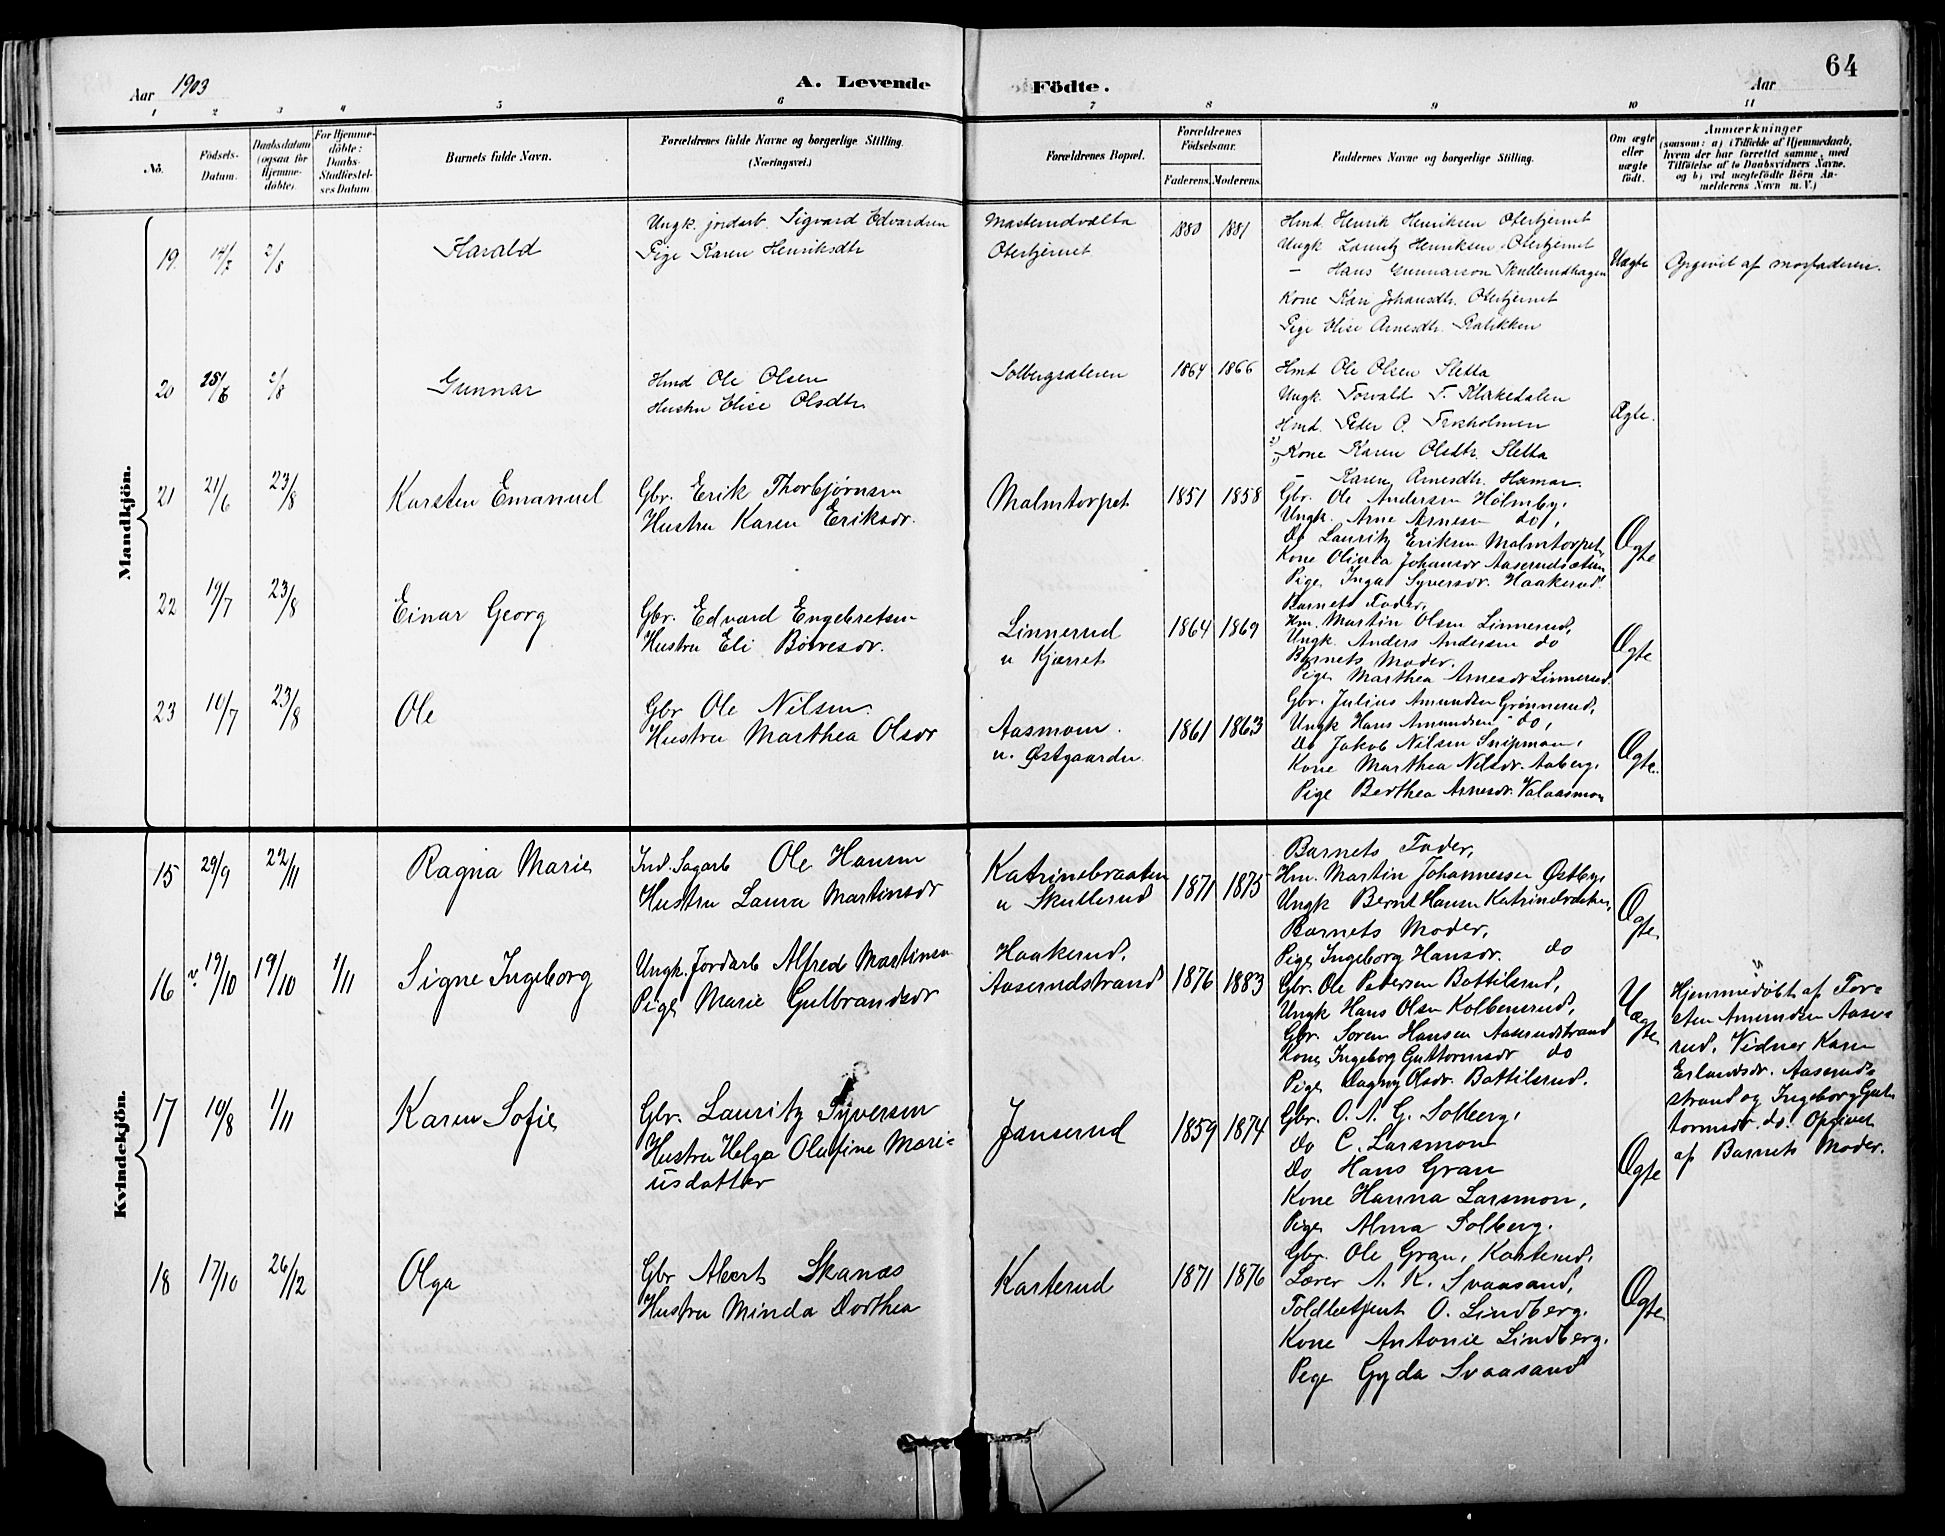 64
Aar 1903
A. Levende
Födte.
Aar
1 2 3 4 5 6 7 8 9 10 11
No.
Födsels-Datum.
Daabsdatum (ogsaa for Hjemmedöbte).
For Hjemmedöbte: Daabs-Stadfæstelses Datum
Barnets fulde Navn.
Forældrenes fulde Navne og borgerlige Stilling.
(Næringsvei.)
Forældrenes Bopæl.
Forældrenes Födselsaar.
Faderens. Moderens.
Faddernes Navne og borgerlige Stilling.
Om ægte eller uægte födt.
Anmærkninger
(saasom: a) i Tilfælde af Hjemmedaab, hvem der har forrettet samme, med Tilföielse af to Daabsvidners Navne, og b) ved uægtefödte Börn Anmelderens Navn m. V.)
Mandkjön.
19. 14/7 2/8
Harald
Ungk. jordarb. Sigvard Edvardsen
Pige Karen Henriksdtr
Masterudvalta
Otertjernet
1880 1881
Hmd Henrik Henriksen Otertjernet
Ungk Lauritz Henriksen Otertjernet
— Hans Gunnarson Skullerudhagen
Kone Kari Johansdtr. Otertjernet
Pige Elise Arnesdtr.
Uægte
Opgivet af morfaderen.
20 28/6 2/8
Gunnar
Hmd Ole Olsen
Hustru Elise Olsdtr.
Solbergsæteren
1864 1866
Hmd Ole Olsen Sletta
Ungk. Torvald T. Kirkedalen
Hmd. Peder O. Froksholmen
Kone Karen Olsdtr. Sletta
— Karen Arnesdtr. Hamar.
Ægte.
21 21/6 23/8
Karsten Emanuel
Gbr. Erik Thorbjørnsen
Hustru Karen Eriksdr.
Malmtorpet
1851 1858
Gbr. Ole Andersen Holmby,
Ungk. Arne Arnesen do,
Do Lauritz Eriksen Malmtorpet,
Kone Olinea Johansdr Aaserudsætren
Pige Inga Syversdr. Haakerud.
Ægte
22 19/7 23/8
Einar Georg
Gbr. Edvard Engebretsen
Hustru Eli Børresdr.
Linnerud
u Kjærret
1864 1869
Barnets Fader,
Hm. Martin Olsen Linnerud,
Ungk. Anders Andersen do
Barnets Moder.
Pige Marthea Arnesdr Linnerud.
Ægte
23 10/7 23/8
Ole
Gbr Ole Nilsen.
Hustru Marthea Olsdr
Aasmoen.
u. Østgaarden.
1861 1863
Gbr. Julius Amundsen Grønnerud,
Ungk Hans Amundsen do,
Do Jakob Nilsen Snipmoen,
Kone Marthea Nilsdr. Aaberg,
Pige Berthea Arnesdr. Valaasmoen
Ægte.
Kvindekjön.
15 29/9 22/11
Ragna Marie
Ind. Sagarb Ole Hansen
Hustru Laura Martinsdr
Katrinebraaten
u Skullerud
1871 1875
Barnets Fader,
Hm. Martin Johannessen Østby,
Ungk Bernt Hansen Katrinebraaten,
Barnets Moder,
Pige Ingeborg Hansdr. do
Ægte
16 19/10 19/10 1/11
Signe Ingeborg
Ungk. Jordarb Alfred Martinsen
Pige Marie Gulbrandsdr
Haakerud.
Aaserudstrand
1876 1883
Gbr. Ole Petersen Bottilsrud,
Ungk Hans Olsen Kolbenrud,
Gbr. Søren Hansen Aaserudstrand
Kone Ingeborg Guttormsdr do
Pige Dagny Olsdr. Bottilsrud.
Uægte
Hjemmedøbt af Torsten Amundsen Aaserud. Vidner Karen Erlandsdr. Aaserudstrand og Ingeborg Guttormsdr. do. Opgivet af Barnets Moder.
17 10/8 1/11
Karen Sofie
Gbr. Lauritz Syversen
Hustru Helga Olufine Mari=
usdatter
Janserud
1859 1874
Gbr. O. A. G. Solberg,
Do C. Larsmon
Do Hans Gran
Kone Hanna Larsmon,
Pige Alma Solberg.
Ægte
18 17/10 26/12
Olga
Gbr Albert Skanæs
Hustru Minda Dorthea
Karterud
1871 1876
Gbr. Ole Gran, Karterud,
Lærer A. K. Svaasand,
Toldbetjent O. Lindberg.
Kone Antonie Lindberg.
Pige Gyda Svaasand
Ægte